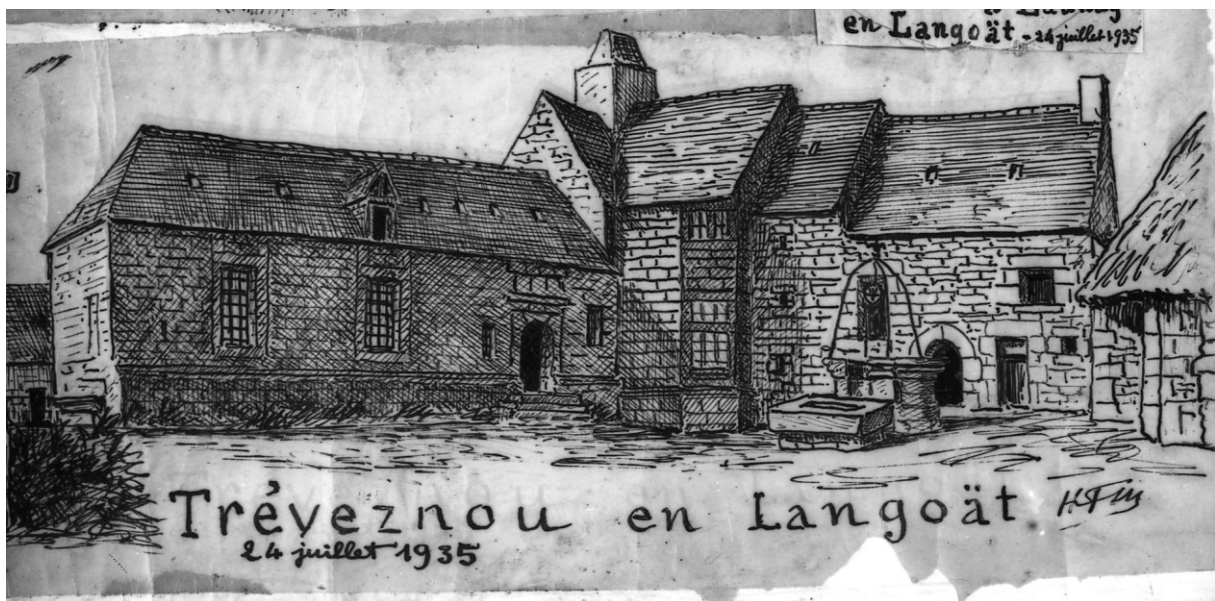 en Langoät - 24 juillet 1935
Tréveznou en Langoät
24 juillet 1935